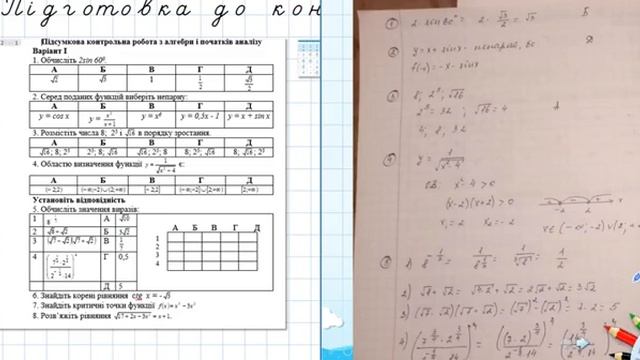 Підготовка до кон
Підсумкова контрольна робота з алгебри і початків аналізу
Варіант I
1. Обчисліть 2sin 60⁰.
А Б В Г Д
√2 √3 1 1/2 √3/2
2. Серед поданих функцій виберіть непарну:
А Б В Г Д
y = cos x y = y = x⁶ y = 0,5x - 1 y = x + sin x
3. Розмістіть числа 8; 2⁵ і √16 в порядку зростання.
А Б В Г Д
√16; 8; 2⁵ 2⁵; 8; √16 √16; 2⁵; 8 8; 2⁵; √16 8; √16; 2⁵
4. Областю визначення функції є:
А Б В Г Д
(-2;2) (-∞;-2)∪(2;+∞) [-2;2] (-∞;-2]∪[2;+∞) [2;+∞)
Установіть відповідність
5. Обчисліть значення виразів:
1 А √10
2 √8 + √2 Б 3√2
3 (√7 - √2)(√7 + √2) В
4 Г 0,5
Д 5
А Б В Г Д
1
2
3
4
6. Знайдіть корені рівняння ctg x = -√3
7. Знайдіть критичні точки функції f(x) = x³ - 3x²
8. Розв’яжіть рівняння √17 + 2x - 3x² = x + 1.
1 2·sin 60° = 2·√3/2 = √3 Б
2 y = x + sin x - Д
f(-x) = -x - sin x
3 8; 2⁵; √16
2⁵ = 32 ; √16 = 4 А
4; 8; 32
4 y = 1/√x²-4
x² - 4 > 0
(x-2)(x+2) > 0 -2 2 x
x₁ = 2 x₂ = -2
5 1) 8^(-1/3) = 1/2
2) √8 + √2 = √4·2 + √2 = 2√2 + √2 = 3√2
3) (√7 - √2)(√7 + √2) = (√7)² - (√2)² = 7 - 2 = 5
4)